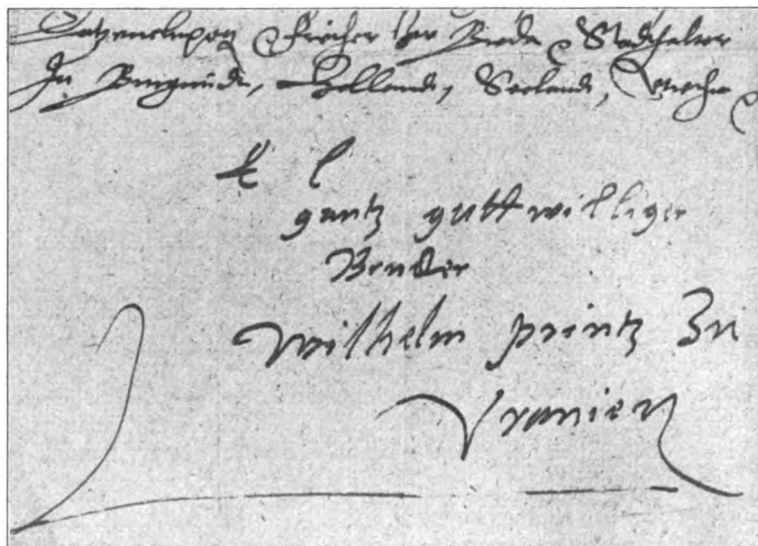 Catzenelnpogen Freiher zur Breda Stadthalter
In Burgundi, Hollandt, Seelandt, Utrecht
E L
gantz guttwilliger
Bruder
Wilhelm printz zu
Vranien